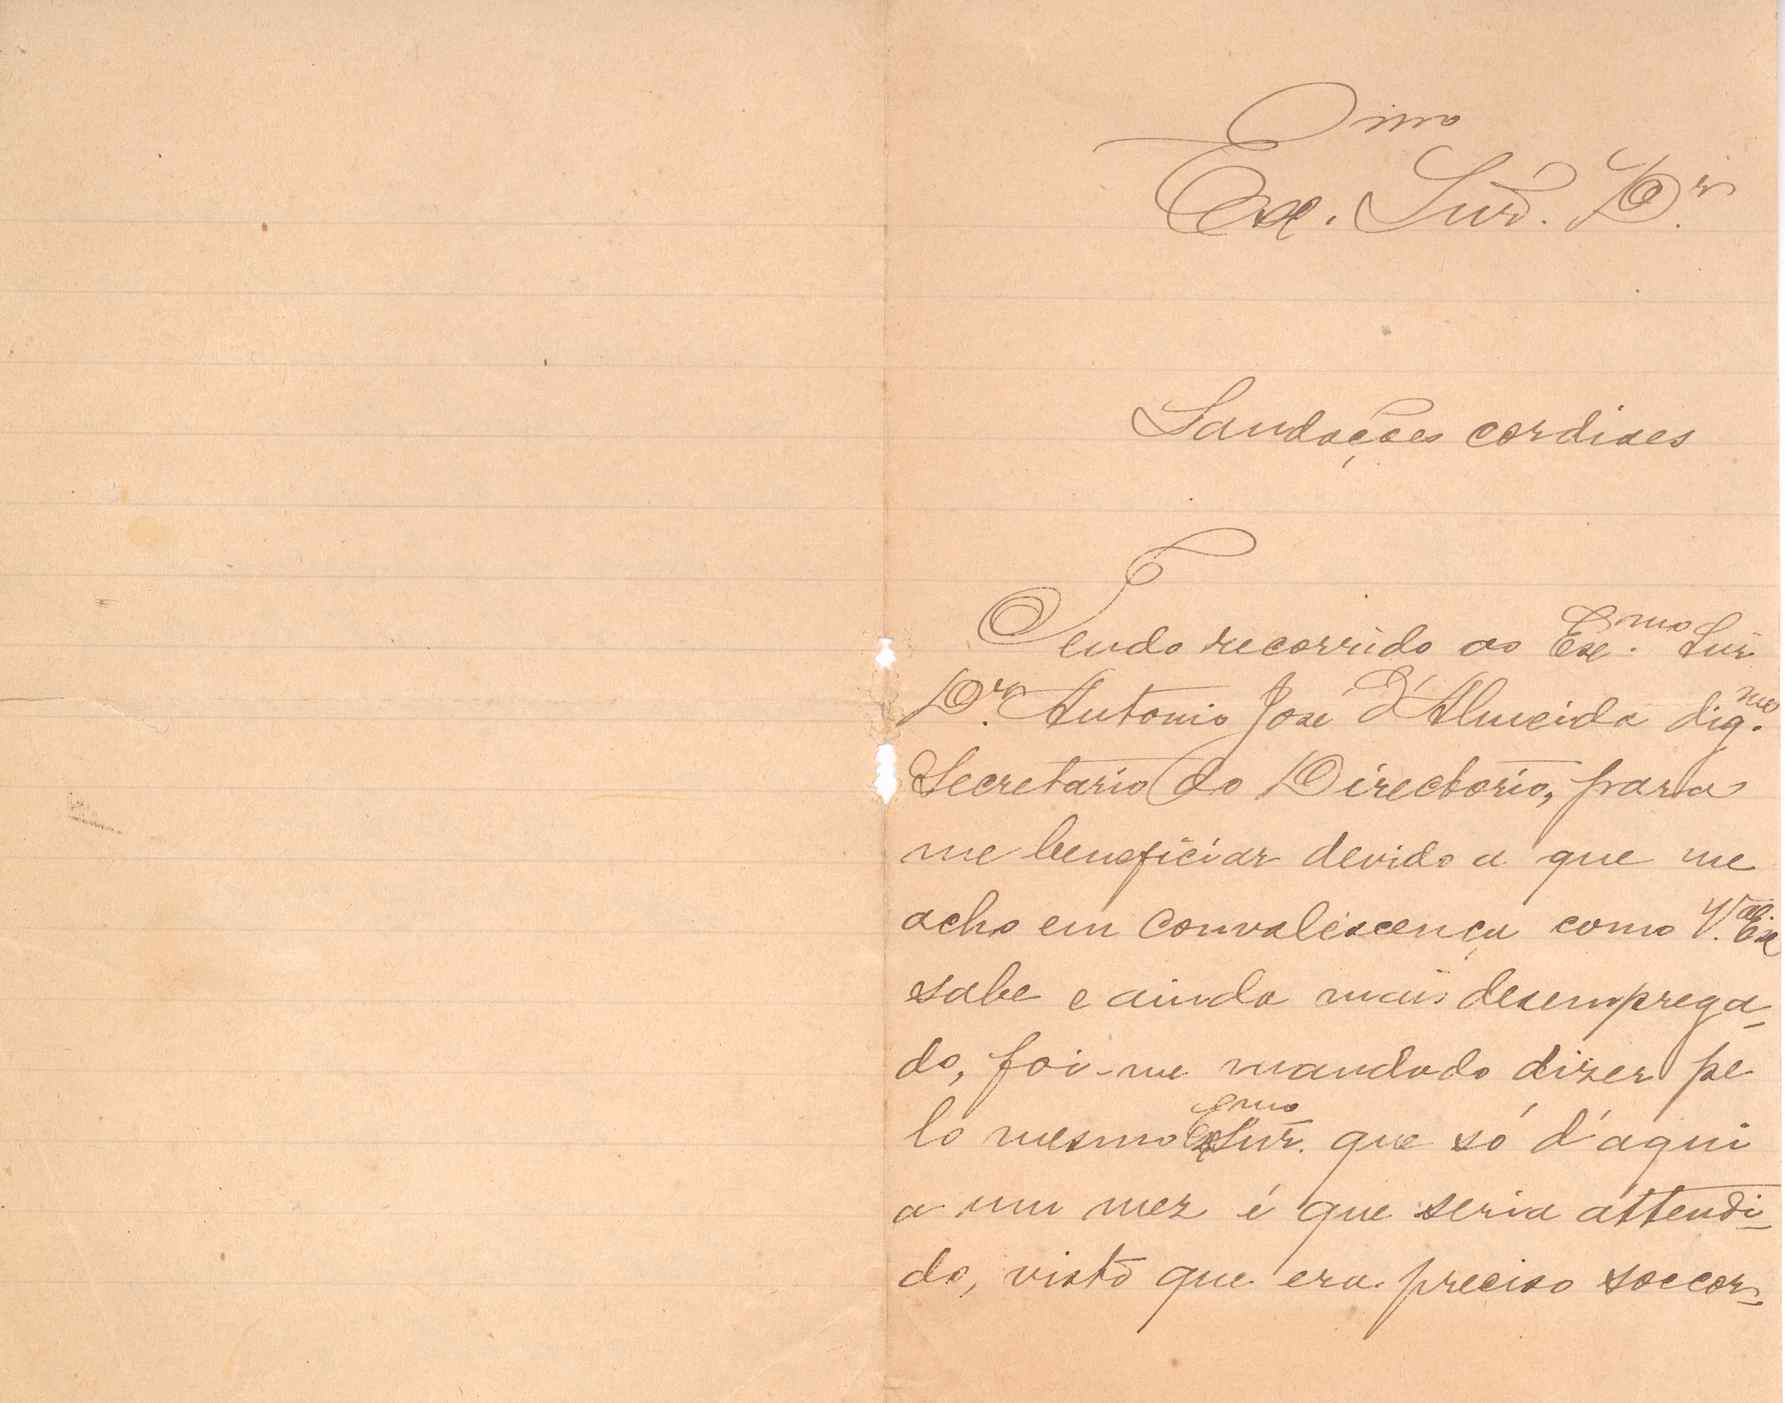 Ex.imo Snr. Dr.
Saudações cordiaes
Tendo recorrido ao Ex.mo Snr
Dr. Antonio José d'Almeida dig.mo
Secretario do Directorio, para
me beneficiar devido a que me
acho em convalescença como V.a Ex
sabe e ainda mais desemprega-
do, foi-me mandado dizer pe
lo mesmo Exmo Snr. que só d'aqui
a um mez é que seria attendi-
do, visto que era preciso soccor-